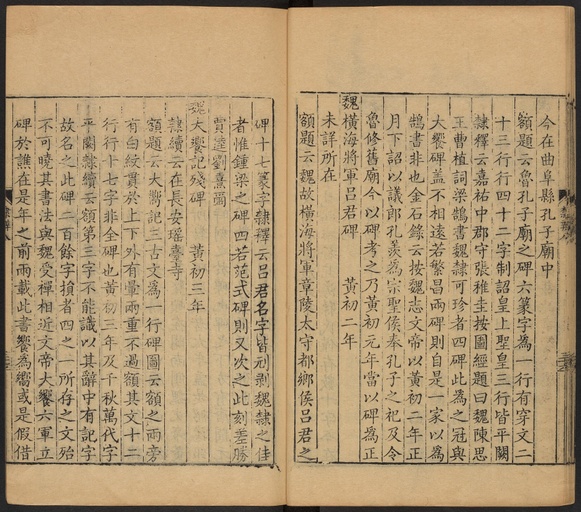 今在曲阜縣孔子廟中
額題云魯孔子廟之碑六篆字為一行有穿文二
十三行行四十二字制詔皇上聖皇三行皆平闕
隸釋云嘉祐中郡守張稚圭按圖經題曰魏陳思
王曹植詞梁鵠書魏隸可珍者四碑此為之冠與
大饗碑盖不相遠若繁昌兩碑則自是一家以為
鵠書非也金石錄云按魏志文帝以黃初二年正
月下詔以議郎孔羡為宗聖侯奉孔子之祀及令
魯修舊廟今以碑考之乃黃初元年當以碑為正
魏橫海將軍呂君碑 黃初二年
未詳所在
額題云魏故橫海將軍章陵太守都鄉侯呂君之
碑十七篆字隸釋云呂君名字皆刓剥魏隸之佳
者惟鍾梁之碑四若范式碑則又次之此刻差勝
賈逵劉熹爾
魏大饗記殘碑 黃初三年
隸續云在長安瑤臺寺
額題云大饗記三古文為一行碑圖云額之兩旁
有白紋貫於上下外有暈兩重不過額其文十二
行行十七字非全碑也黃初三年及千秋萬代字
平闕隸續云額第三字不能識以其辭中有記字
故名之此碑二百餘字損者四之一所存之文殆
不可曉其書法與魏受禪相近文帝大饗六軍立
碑於譙在是年之前兩載此書饗為嚮或是假借